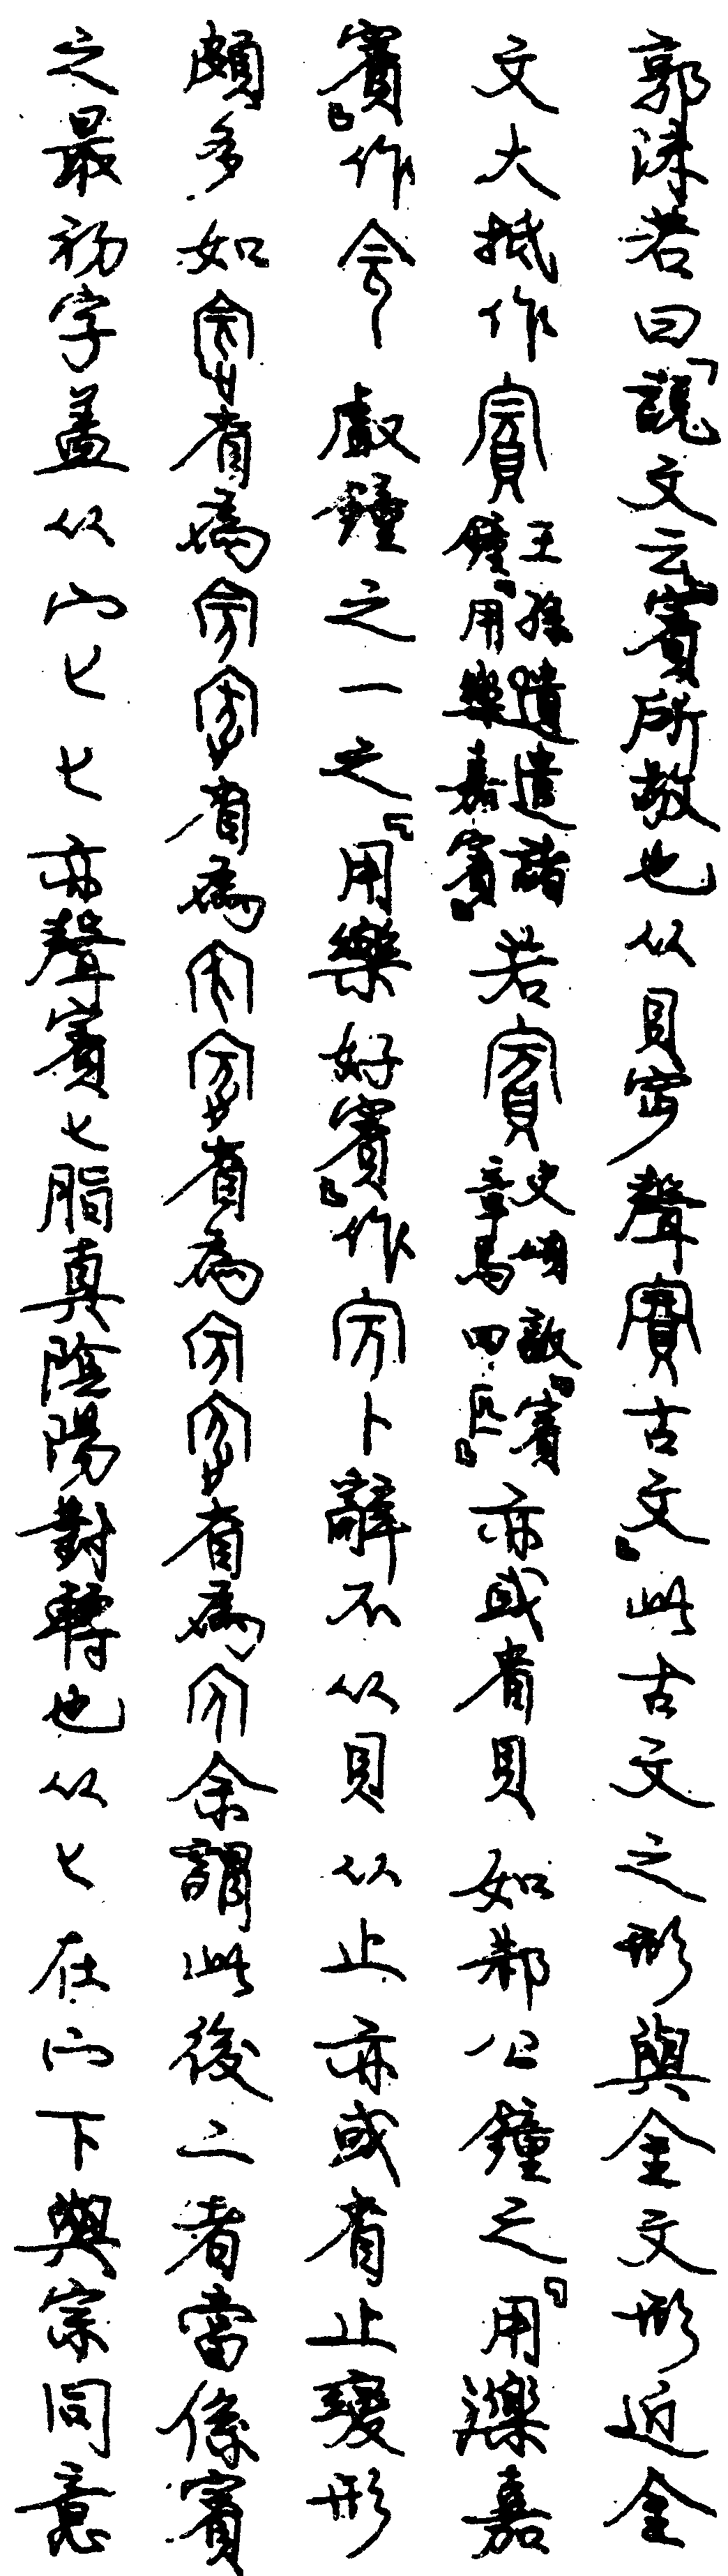 郭沫若曰「說文云『賓所敬也从貝𡧍聲𡪛古文』此古文之形與金文形近金
文大抵作賓王孫遺遣諸鐘『用樂嘉賓』若賓史頌𣪘『賓章馬四匹』亦或省貝如邾公鐘之『用濼嘉
賓』作 𠭯鐘之一之『用樂好賓』作㝑卜辭不从貝从止亦或省止變形
頗多如 省為 省為 省為 省為 余謂此後二者當係賓
之最初字蓋从宀匕匕亦聲賓匕脂真陰陽對轉也从匕在宀下與宗同意